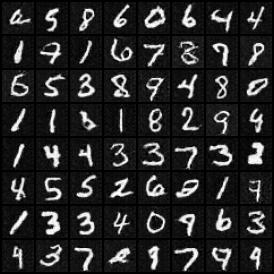 2 5 8 6 0 6 4 4
1 9 1 6 7 8 9 8
5 5 3 8 9 4 8 0
1 1 6 1 8 2 9 9
1 4 4 3 3 7 3 2
4 5 5 2 6 8 1 9
1 3 3 4 0 9 6 3
9 3 7 8 9 7 9 9